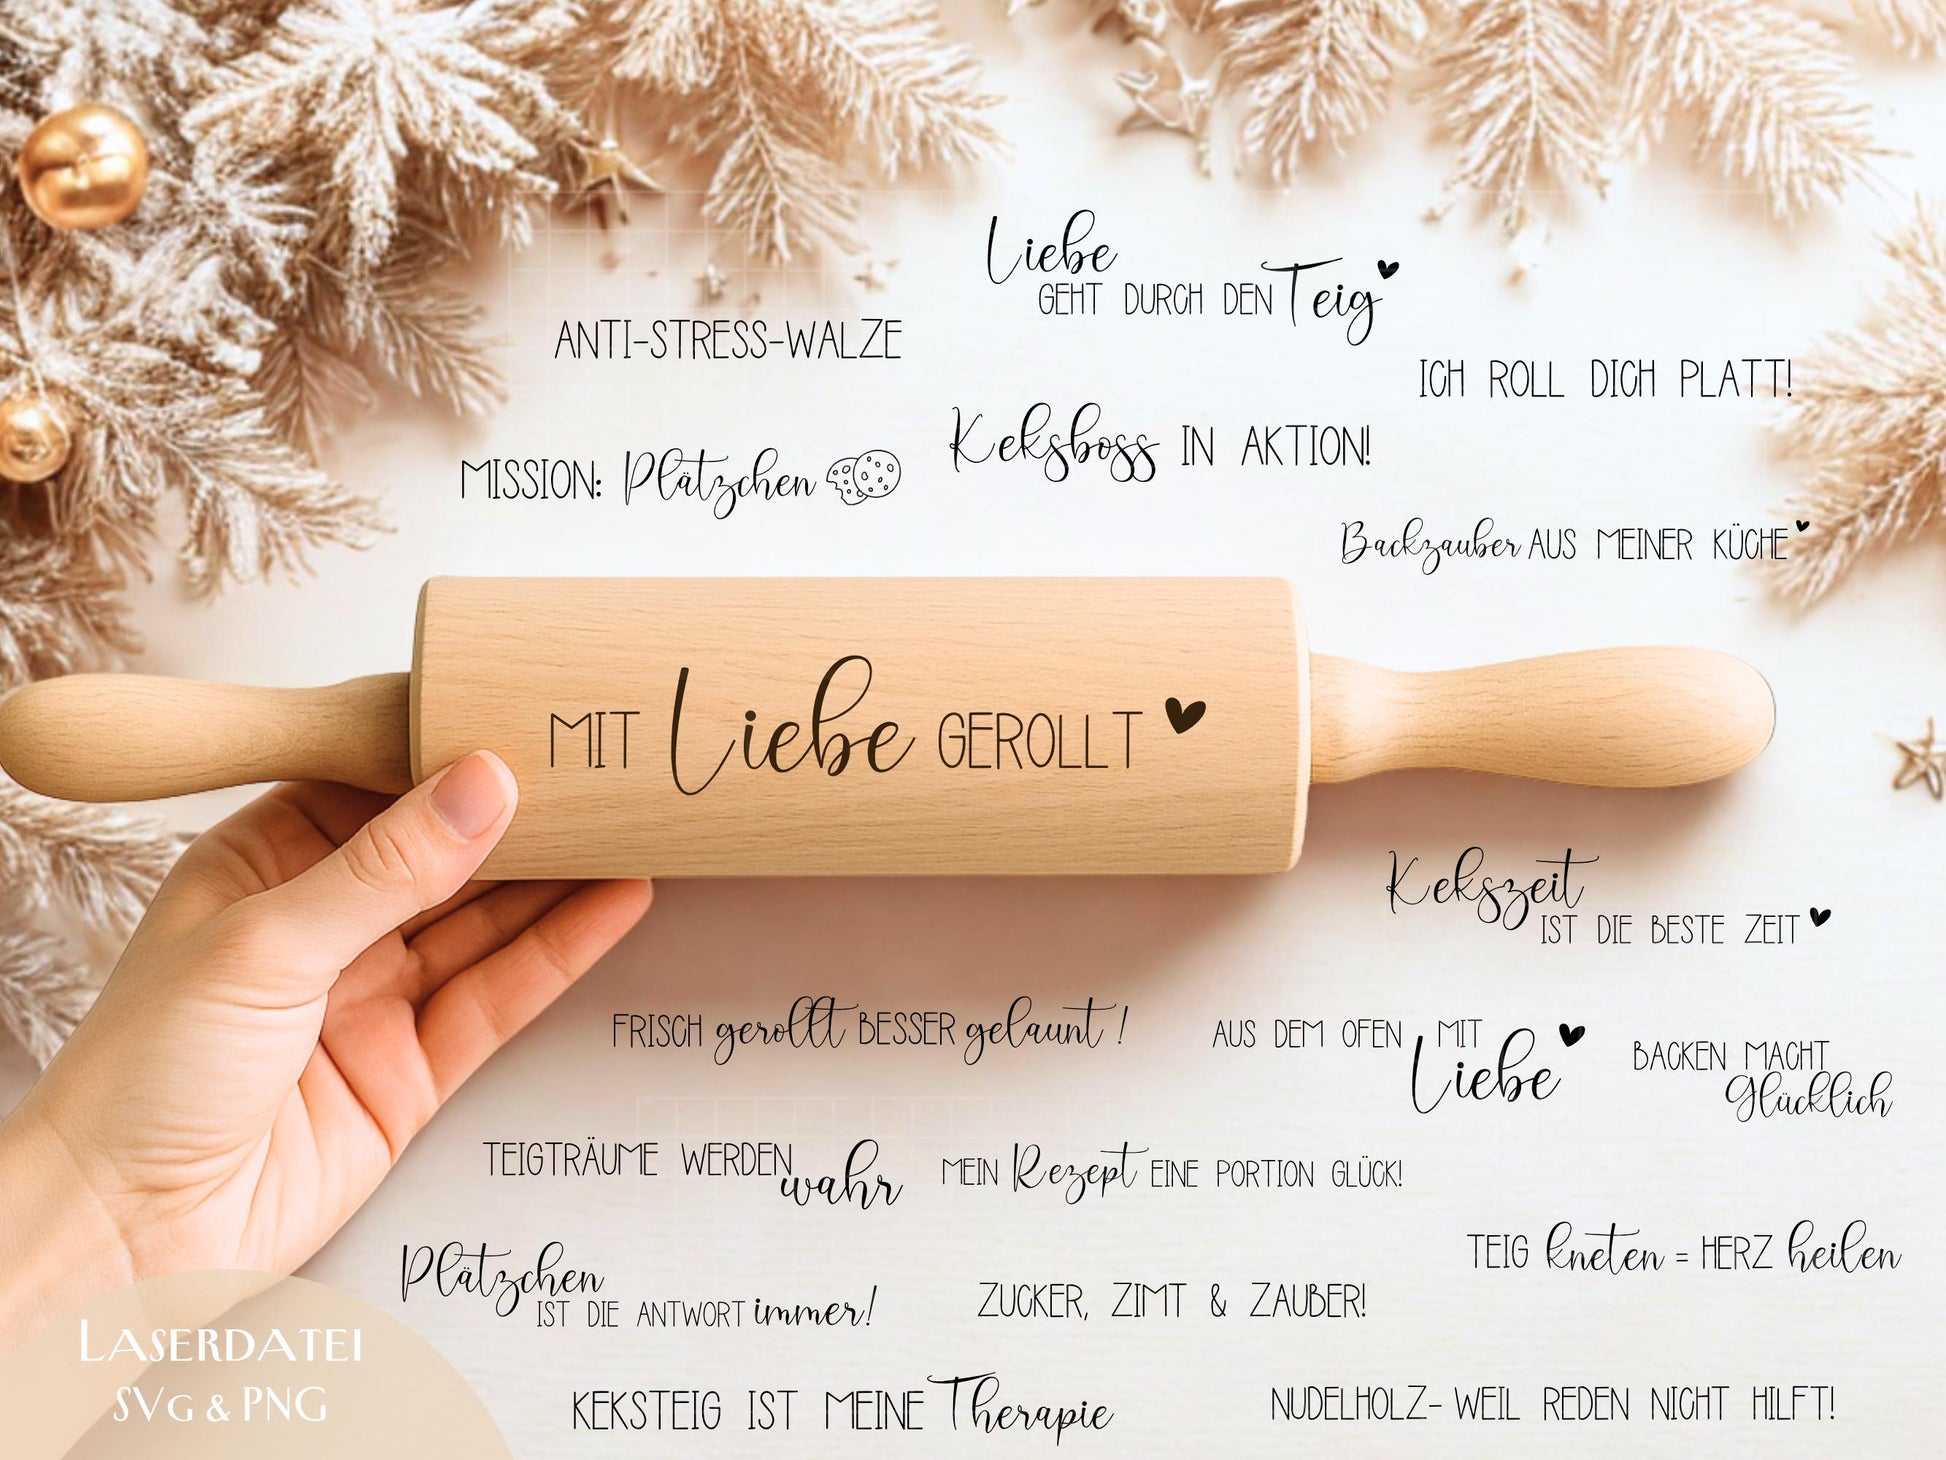 Liebe
GEHT DURCH DEN Teig
ANTI-STRESS-WALZE
ICH ROLL DICH PLATT!
Keksboss IN AKTION!
MISSION: Plätzchen
Backzauber AUS MEINER KÜCHE
MIT Liebe GEROLLT
Kekszeit
IST DIE BESTE ZEIT
FRISCH gerollt BESSER gelaunt!
AUS DEM OFEN MIT
Liebe
BACKEN MACHT
Glücklich
TEIGTRÄUME WERDEN
wahr
MEIN Rezept EINE PORTION GLÜCK!
TEIG kneten = HERZ heilen
Plätzchen
IST DIE ANTWORT immer!
ZUCKER, ZIMT & ZAUBER!
LASERDATEI
SVG & PNG
KEKSTEIG IST MEINE Therapie
NUDELHOLZ- WEIL REDEN NICHT HILFT!